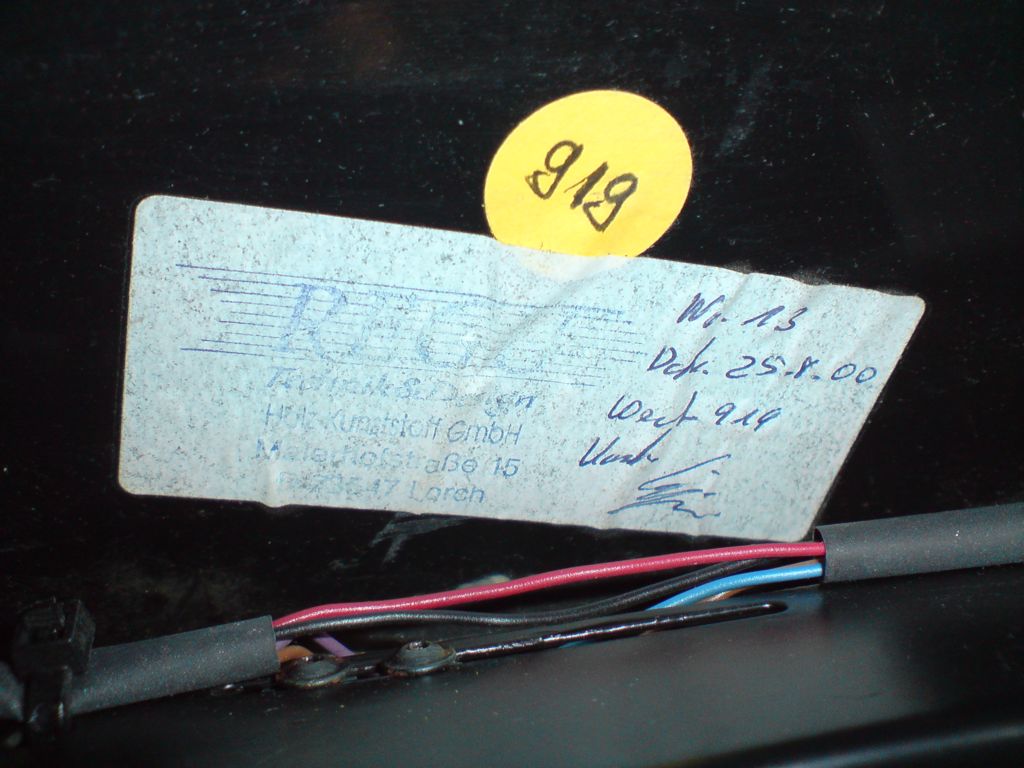 919
REGE
Technik & Design
Holz-Kunststoff GmbH
Maierhofstraße 15
D-73547 Lorch
Nr. 13
Dat. 25.8.00
Wert 919